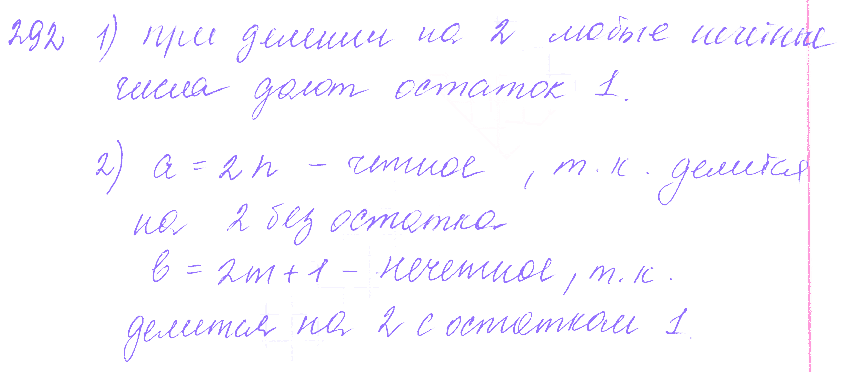 292 1) при делении на 2 любые нечетные
числа дают остаток 1.
2) a = 2n - четное, т.к. делится
на 2 без остатка
b = 2m + 1 - нечетное, т.к.
делится на 2 с остатком 1.